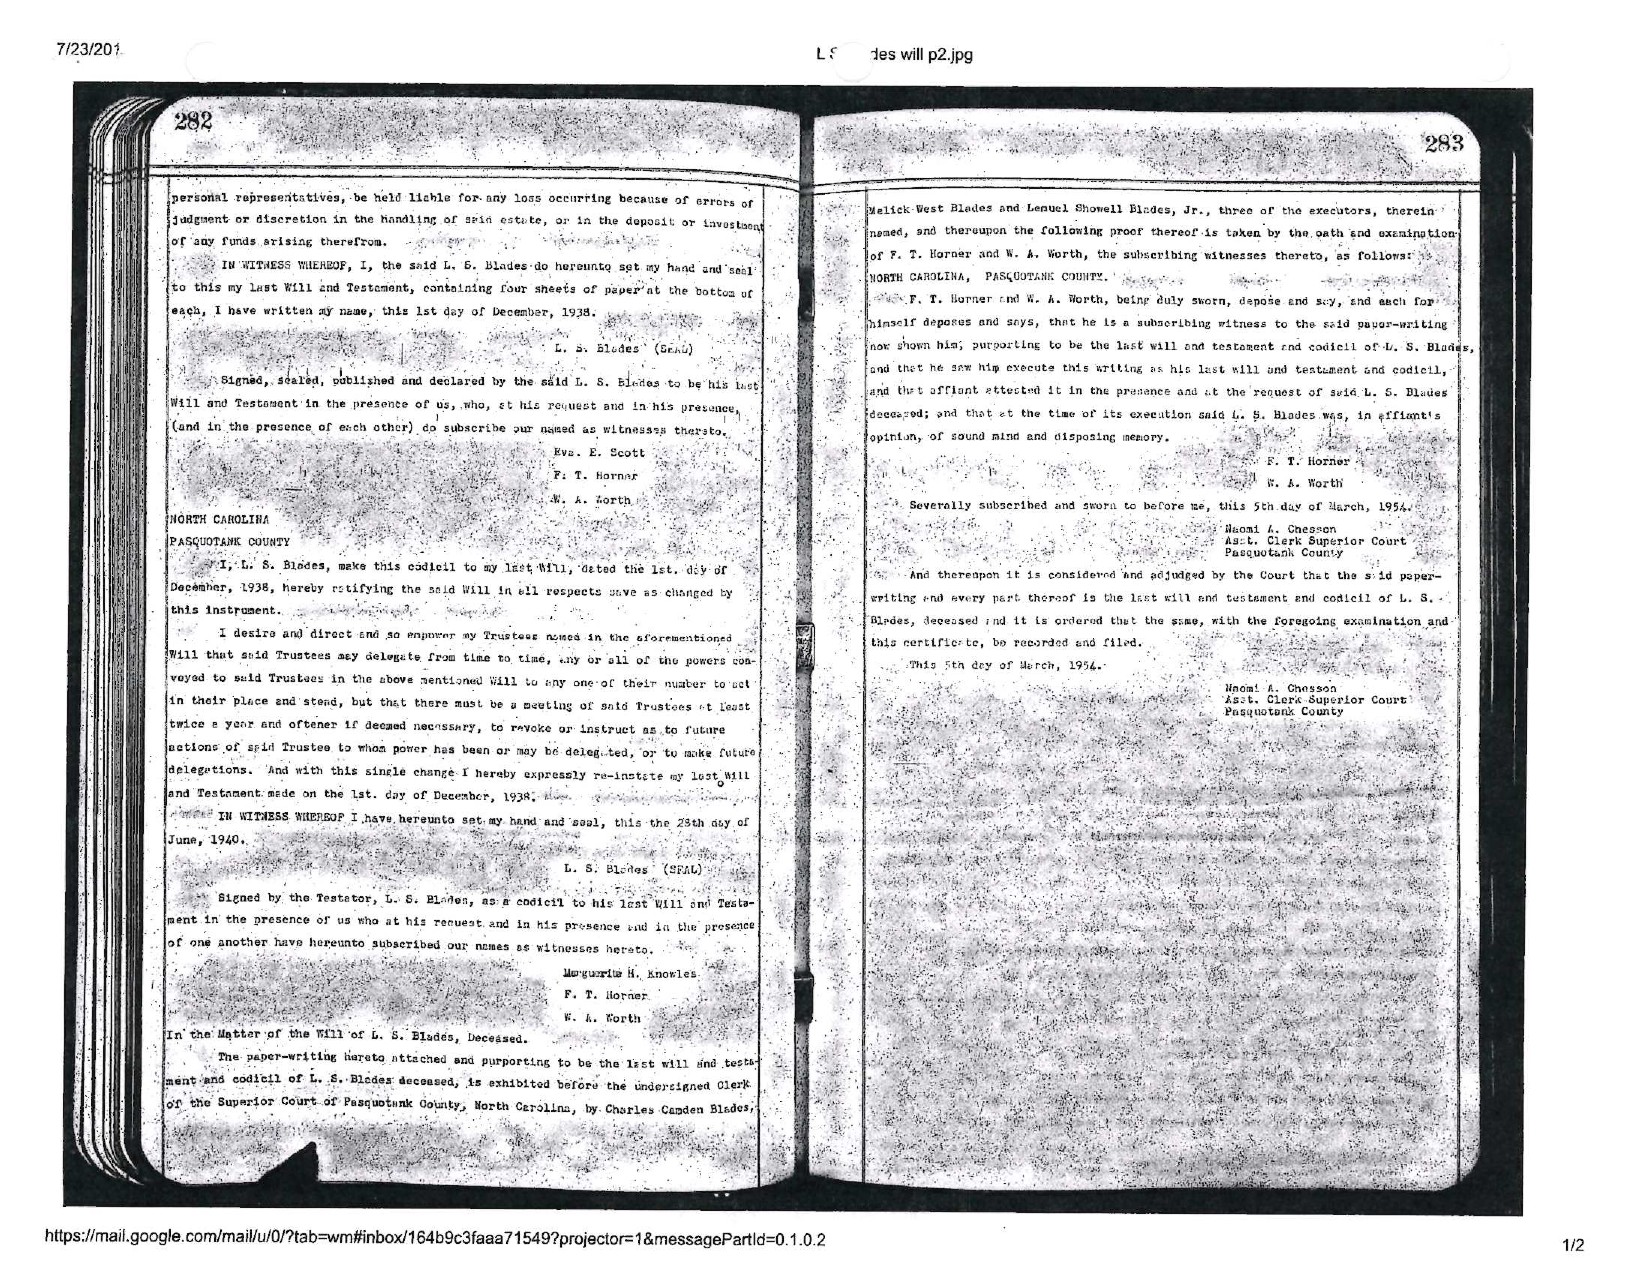 7/23/201
L S des will p2.jpg
282
personal representatives, be held liable for any loss occurring because of errors of
judgment or discretion in the handling of said estate, or in the deposit or investment
of any funds arising therefrom.
IN WITNESS WHEREOF, I, the said L. S. Blades do hereunto set my hand and seal
to this my last Will and Testament, containing four sheets of paper at the bottom of
each, I have written my name, this 1st day of December, 1938.
L. S. Blades (SEAL)
Signed, sealed, published and declared by the said L. S. Blades to be his last
Will and Testament in the presence of us, who, at his request and in his presence,
(and in the presence of each other) do subscribe our named as witnesses thereto.
Eva. E. Scott
F. T. Horner
W. A. Worth
NORTH CAROLINA
PASQUOTANK COUNTY
I, L. S. Blades, make this codicil to my last Will, dated the 1st. day of
December, 1938, hereby ratifying the said Will in all respects save as changed by
this instrument.
I desire and direct and so empower my Trustees named in the aforementioned
Will that said Trustees may delegate from time to time, any or all of the powers con-
veyed to said Trustees in the above mentioned Will to any one of their number to act
in their place and stead, but that there must be a meeting of said Trustees at least
twice a year and oftener if deemed necessary, to revoke or instruct as to future
actions of said Trustee to whom power has been or may be delegated, or to make future
delegations. And with this single change I hereby expressly re-instate my last Will
and Testament made on the 1st. day of December, 1938.
IN WITNESS WHEREOF I have hereunto set my hand and seal, this the 28th day of
June, 1940.
L. S. Blades (SEAL)
Signed by the Testator, L. S. Blades, as a codicil to his last Will and Testa-
ment in the presence of us who at his request and in his presence and in the presence
of one another have hereunto subscribed our names as witnesses hereto.
Marguerite H. Knowles
F. T. Horner
W. A. Worth
In the Matter of the Will of L. S. Blades, Deceased.
The paper-writing hereto attached and purporting to be the last will and testa-
ment and codicil of L. S. Blades deceased, is exhibited before the undersigned Clerk
of the Superior Court of Pasquotank County, North Carolina, by Charles Camden Blades,
283
Melick West Blades and Lemuel Showell Blades, Jr., three of the executors, therein
named, and thereupon the following proof thereof is taken by the oath and examination
of F. T. Horner and W. A. Worth, the subscribing witnesses thereto, as follows:
NORTH CAROLINA, PASQUOTANK COUNTY.
F. T. Horner and W. A. Worth, being duly sworn, depose and say, and each for
himself deposes and says, that he is a subscribing witness to the said paper-writing
now shown him, purporting to be the last will and testament and codicil of L. S. Blades,
and that he saw him execute this writing as his last will and testament and codicil,
and that affiant attested it in the presence and at the request of said L. S. Blades
deceased; and that at the time of its execution said L. S. Blades was, in affiant's
opinion, of sound mind and disposing memory.
F. T. Horner
W. A. Worth
Severally subscribed and sworn to before me, this 5th day of March, 1954.
Naomi A. Chesson
Asst. Clerk Superior Court
Pasquotank County
And thereupon it is considered and adjudged by the Court that the said paper-
writing and every part thereof is the last will and testament and codicil of L. S.
Blades, deceased and it is ordered that the same, with the foregoing examination and
this certificate, be recorded and filed.
This 5th day of March, 1954.
Naomi A. Chesson
Asst. Clerk Superior Court
Pasquotank County
https://mail.google.com/mail/u/0/?tab=wm#inbox/164b9c3faaa71549?projector=1&messagePartId=0.1.0.2
1/2